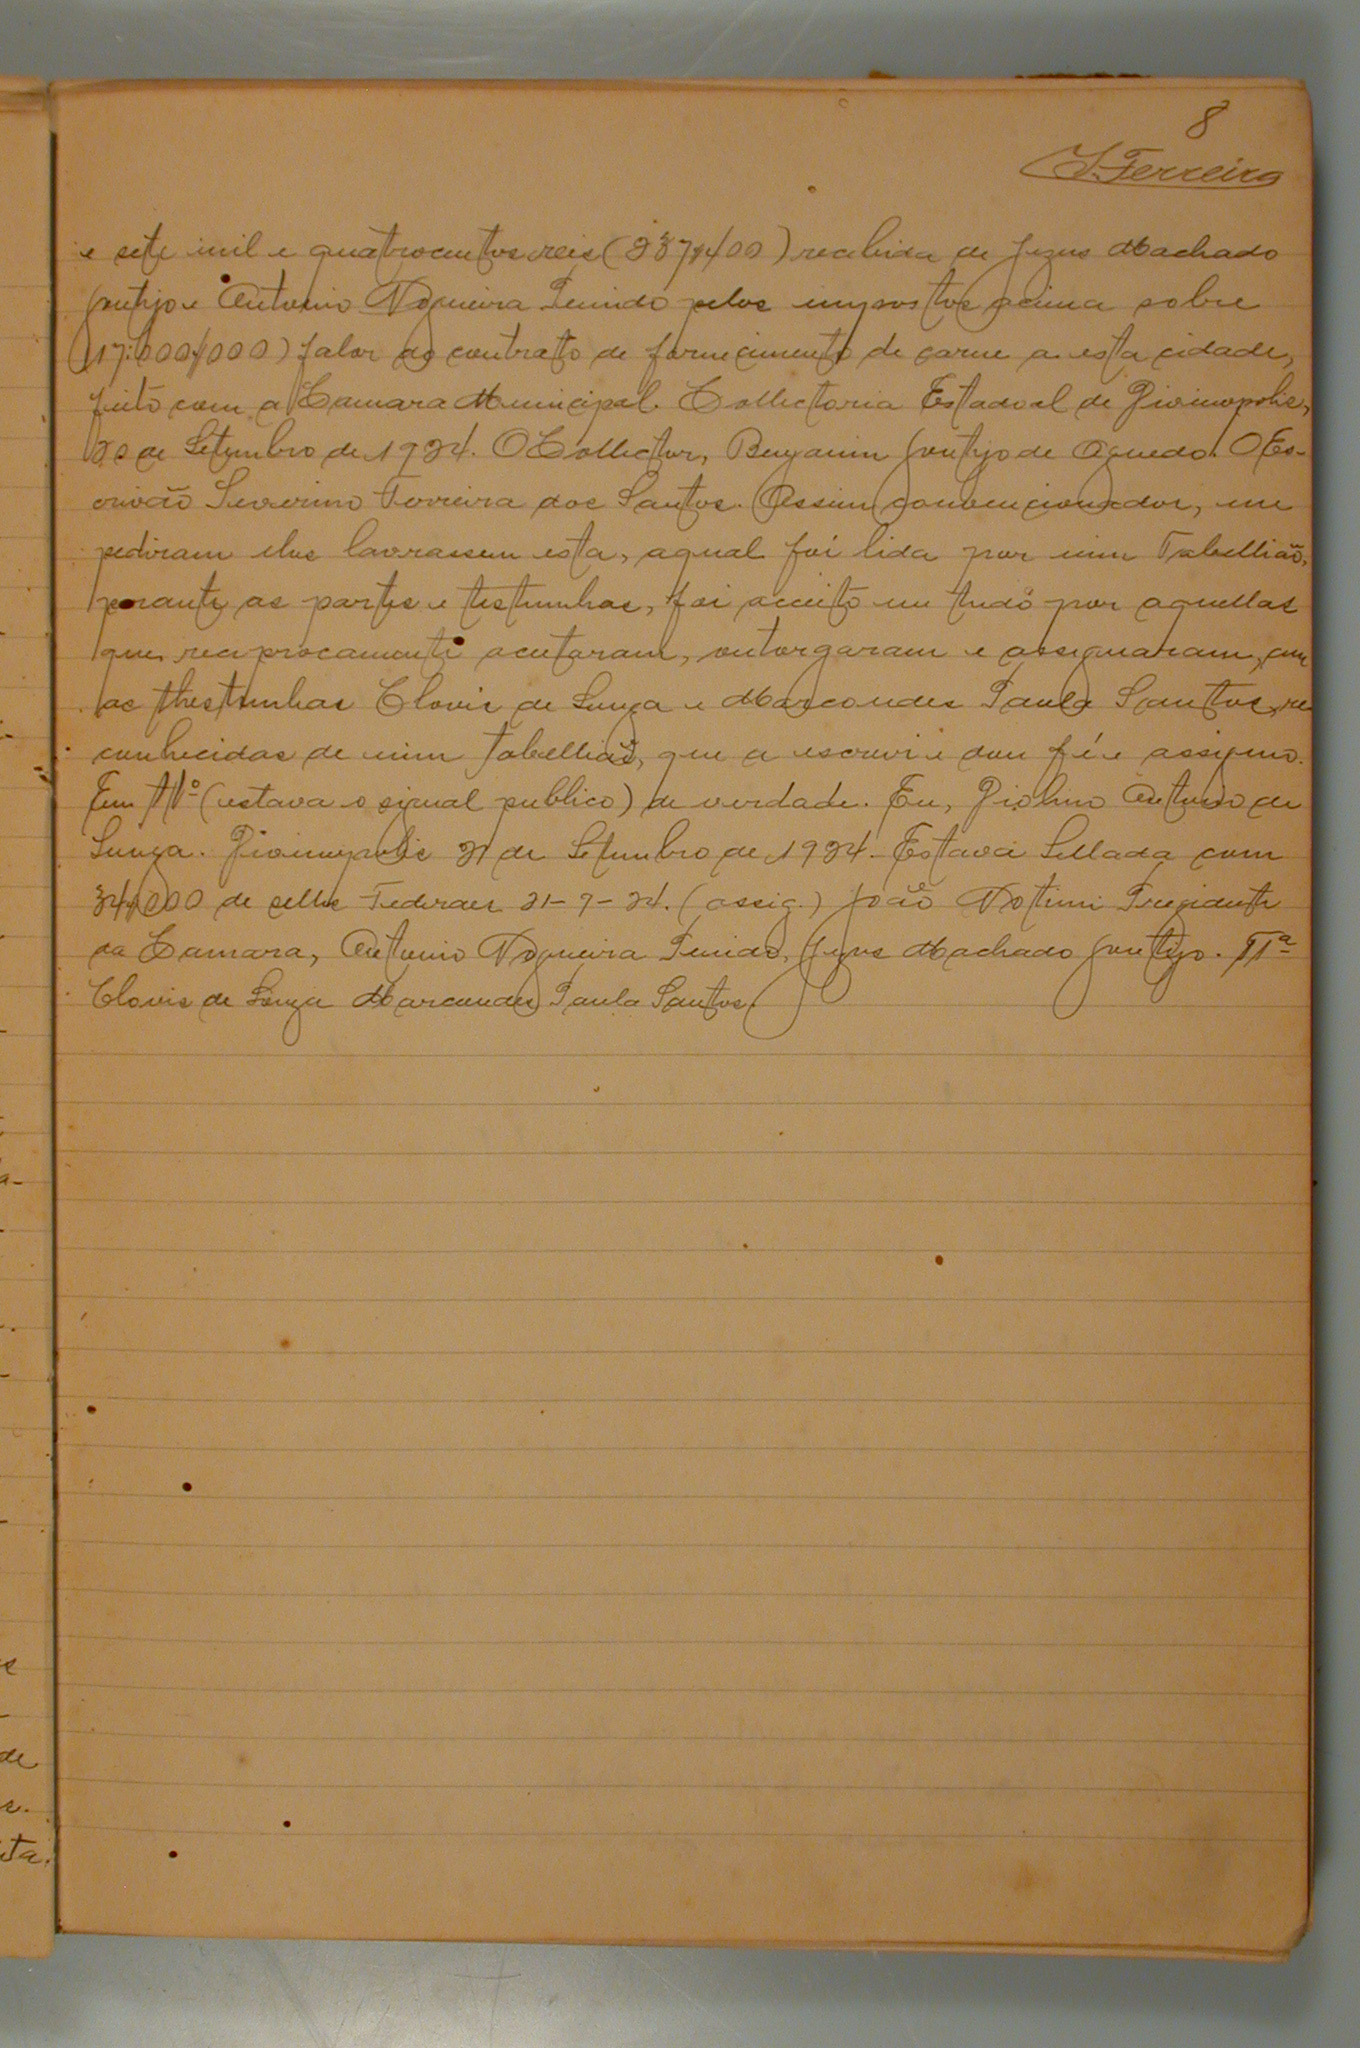 8
J. Ferreira
e sete mil e quatrocentos reis (237$400) recebida de Jezus Machado
Gontijo e Antonio Nogueira Penido pelos impostos acima sobre
(17:000$000) valor do contrato de fornecimento de carne a esta cidade,
feito com a Camara Municipal. Collectoria Estadoal de Divinopolis,
20 de Setembro de 1924. O Collector, Benjamin Gontijo de Azevedo. O Es-
crivão Severino Ferreira dos Santos. Assim convencionados, me
pediram lhes lavrassem esta, a qual foi lida por mim Tabellião,
perante as partes e testemunhas, foi acceito em tudo por aquellas
que, reciprocamente aceitaram, outorgaram e assignaram, com
as thestimunhas Clovis de Souza e Marcondes Paula Santos, re
conhecidas de mim tabellião, que a escrevi e dou fé e assigno.
Em Ttº (estava o signal publico) de verdade. Eu, Antonio de
Souza. Divinopolis 21 de Setembro de 1924. Estava Sellada com
34$000 de sellos Federaes 21-9-24. (assig.) João Notini Presidente
da Camara, Antonio Nogueira Penido, Jezus Machado Gontijo. TTª
Clovis de Souza Marcondes Paula Santos.
de